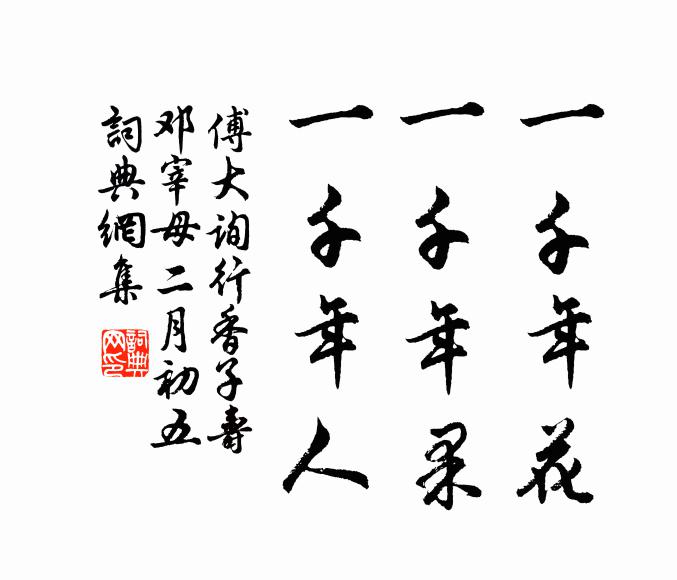 一千年花
一千年果
一千年人
傅大询行香子壽
邓宰母二月初五
詞典網集
詞典网印